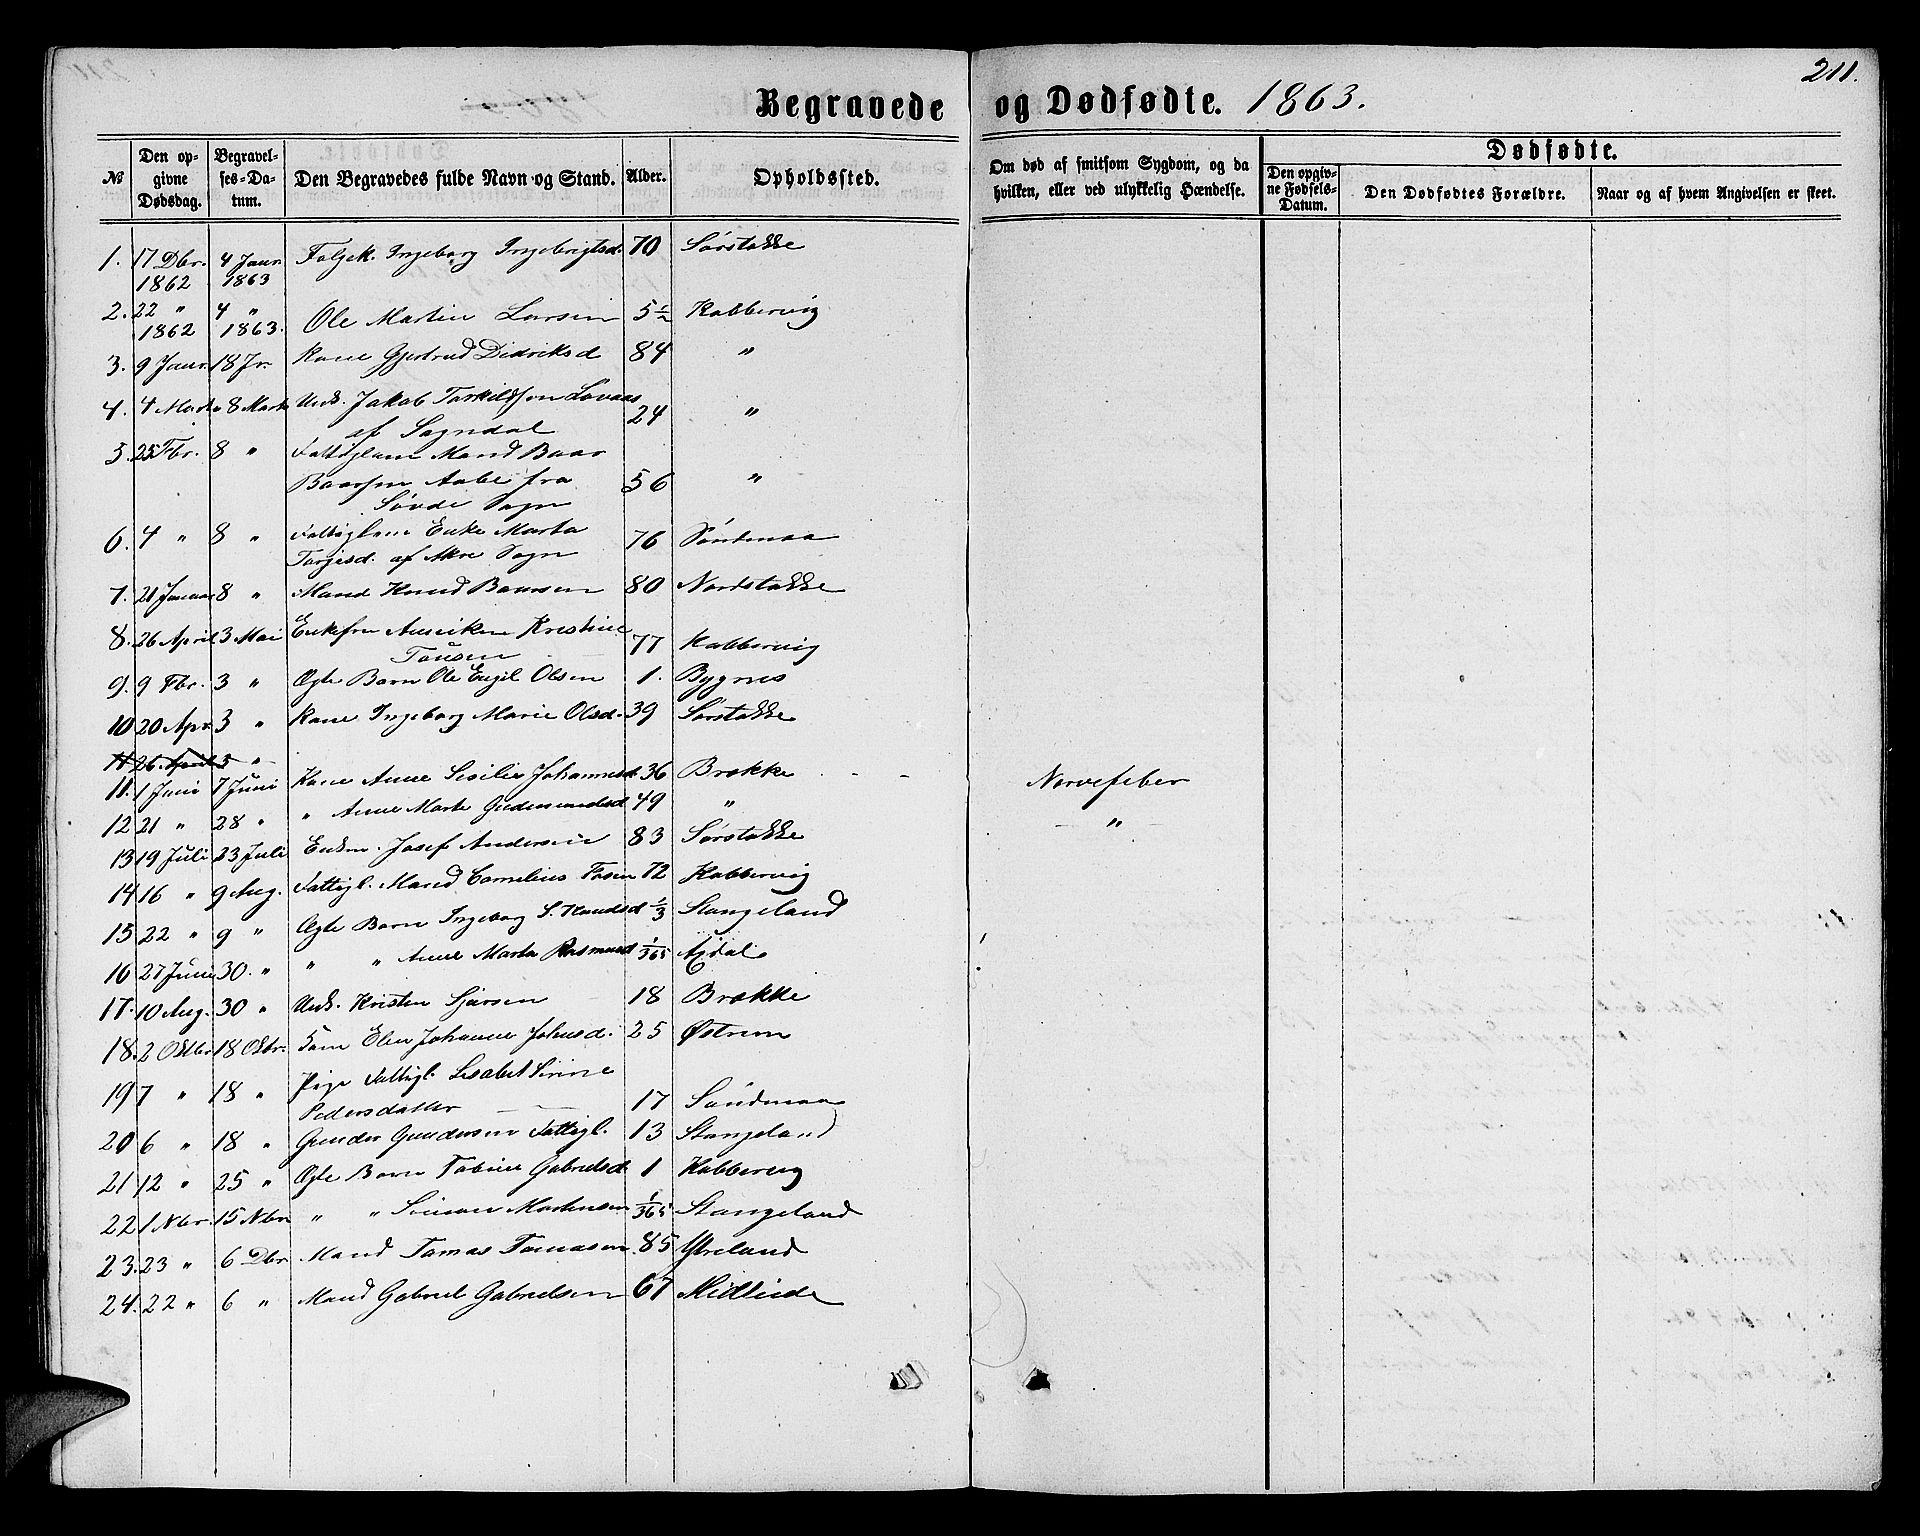 211.
Begravede og Dødfødte. 1863.
№ Den opgivne Dødsdag. Begravelses-Datum. Den Begravedes fulde Navn og Stand. Alder. Opholdssted. Om død af smitsom Sygdom, og da hvilken, eller ved ulykkelig Hændelse. Dødfødte. Den opgivne Fødsels-Datum. Den Dødfødtes Forældre. Naar og af hvem Angivelsen er skeet.
1. 17 Dbr. 1862 4 Janr. 1863 Ingeborg Ingebrigtsd. 70 Sørstokke
2. 22 " 1862 4 " 1863. Ole Martin Larsen 5 1/2 Kobbervig
3. 9 Janr. 18 Jr. Kone Gjertrud Didriksd 84 "
4. 4 Marts 8 Marts Unk. Jakob Torkildsen Lovaas
af Sogndal 24 "
5. 25 Fbr. 8 " Fattiglem Mand Baar
Baarsen Aabe fra 56 "
Søvde Sogn
6. 4 " 8 " Fattiglem Enke Marta
Torgiesd. af Akre Sogn 76 Sündmaa
7. 21 Januar 8 " Mand Knud Baarsen 80 Nordstokke
8. 26 April 3 Mai Enkefru Kristine
77 Kobbervig
9. 9 Fbr. 3 " Ægte Barn Ole Engil Olsen 1. Bygnes
10 20 Apr. 3 " Kone Ingeborg Marie Olsd. 39 Sørstokke
11 26 April 3 "
11. 1 Juni 7 Juni Kone Anne Sesilie Johannesd. 36 Brekke Nervefeber
12 21 " 28 " " Anne Marta Gudmundsd. 49 " "
13 19 Juli 23 Juli Enkm. Josef Andersen 83 Sørstokke
14 16 " 9 Aug. Fattigl. Mand Cornelius Fosen 72 Kobbervig
15 22 " 9 " Ægte Barn Ingeborg S. Knudsd 1/3 Stangeland
16 27 Juni 30. " " " Anne Marta Rasmusd 1/365
17. 10 Aug. 30 " Unk. Kristen Sjursen 18 Brekke
18. 2 Oktbr 18 Oktbr. Elen Johanne Johnsd. 25 Østrem
19 7 " 18 " Pige Fattigl. Lisabet Serine
Pedersdatter 17 Sündmaa
20 6 " 18 " Gunder Gundersen Fattigl. 13 Stangeland
21 12 " 25 " Ægte Barn Tobine Gabrielsd. 1 Kobbervig
22 1 Nbr. 15 Nbr " " Simon Mortensen 1/365 Stangeland
23. 23 " 6 Dbr. Mand Tomas Tomasen 85 Ytreland
24. 22 " 6 " Mand Gabriel Gabrielsen 67 Midtinde